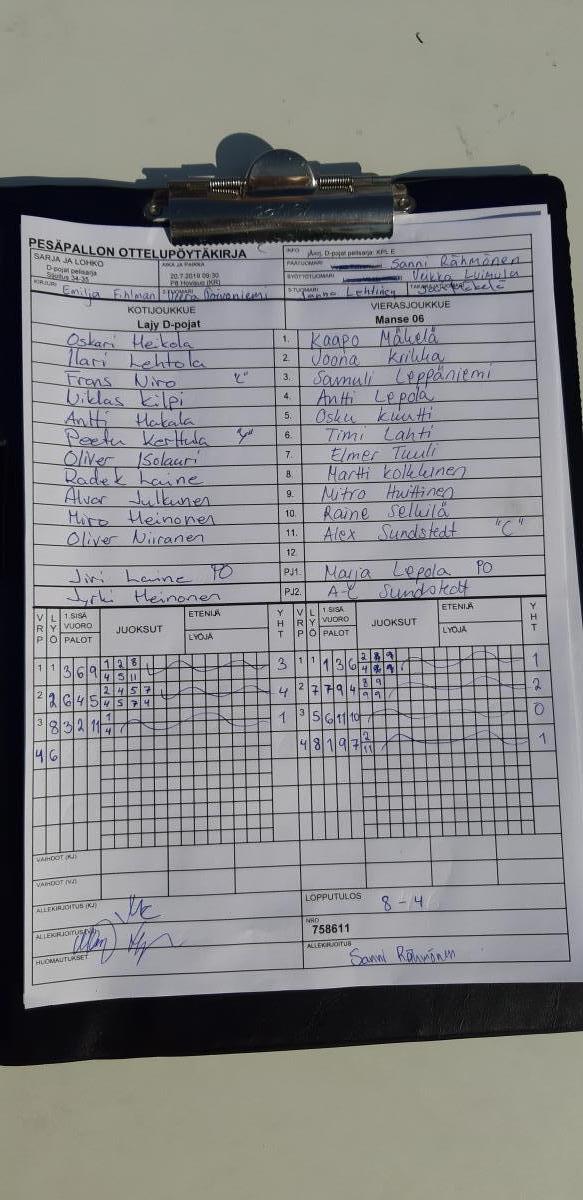 PESÄPALLON OTTELUPÖYTÄKIRJA
SARJA JA LOHKO
D-pojat pelisarja
Sijoitus 34-35
AIKA JA PAIKKA
20.7.2019 09:30
P8 Hovisuo (KR)
INFO D-pojat pelisarja: KPL E
PÄÄTUOMARI Sanni Rähmönen
SYÖTTÖTUOMARI
KIRJURI Emilja Fihlman
2-TUOMARI
3-TUOMARI Janne Lehtinen
KOTIJOUKKUE VIERASJOUKKUE
Lajy D-pojat Manse 06
Oskari Heikola 1. Kaapo Mäkelä
Ilari Lehtola 2. Joona Krikka
Frans Niro "C" 3. Samuli Leppäniemi
Niklas Kilpi 4. Antti Lepola
Antti Hakala 5. Osku Kuutti
Peetu Kerttula 6. Timi Lahti
Oliver Isolauri 7. Elmer Tuuli
Radek Laine 8. Martti Kolkkinen
Alvar Julkunen 9. Mitro Huittinen
Miro Heinonen 10. Raine Selkilä
Oliver Niiranen 11. Alex Sundstedt "C"
12.
Jiri Laine PO PJ1. Marja Lepola PO
Jyrki Heinonen PJ2. A-C Sundstedt
VRP LYÖ 1.SISÄ VUORO PALOT JUOKSUT ETENIJÄ LYÖJÄ YHT VRP LYÖ 1.SISÄ VUORO PALOT JUOKSUT ETENIJÄ LYÖJÄ YHT
1 1 3 6 9 1 2 8 3 1 1 1 3 6 2 8 9 1
4 5 11
2 2 6 4 5 2 4 5 7 4 2 7 7 9 4 8 9 2
4 5 7 4 9 9
3 8 3 2 11 1 1 3 5 6 11 10 0
4
4 6 4 8 1 9 7 2 1
11
VAIHDOT (KJ)
VAIHDOT (VJ)
ALLEKIRJOITUS (KJ)
LOPPUTULOS 8-4
ALLEKIRJOITUS (VJ)
NRO
758611
HUOMAUTUKSET
ALLEKIRJOITUS
Sanni Rähmönen